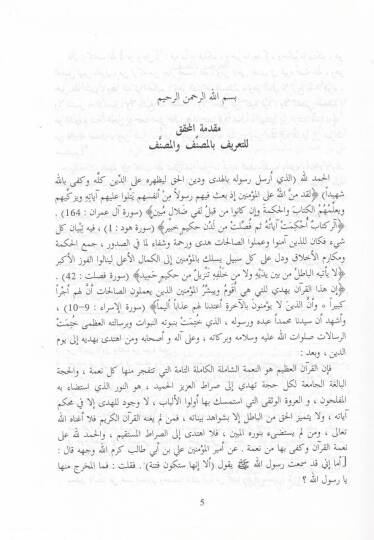 بسم الله الرحمن الرحيم
مقدمة المحقق
للتعريف بالمصنَّف والمصنِّف
الحمد لله (الذي أرسل رسوله بالهدى ودين الحق ليظهره على الدِّين كلّه وكفى بالله
شهيداً) ﴿لقد منَّ اللهُ على المؤمنين إذ بعث فيهم رسولاً مِنْ أنفسهم يَتلوا عليهم آياتِهِ ويزكيهم
ويعلِّمُهُمُ الكتابَ والحكمةَ وإن كانوا من قبلُ لفي ضلالٍ مُبين﴾ (سورة آل عمران : 164) .
﴿آلر كتابٌ أُحْكِمَتْ آياتُهُ ثم فُصِّلَت من لَدُن حكيمٍ خبير﴾ (سورة هود : 1) ، فيه تِبْيان كل
شيء فكان للذين آمنوا وعملوا الصالحات هدى ورحمة وشفاء لما في الصدور ، جمع الحكمة
ومكارم الأخلاق ودل على كل سبيل يسلك بالمؤمنين إلى الكمال الأعلى لينالوا الفوز الأكبر
﴿لا يأتيه الباطلُ من بين يديْهِ ولا من خَلْفِهِ تَنْزيلٌ من حكيمٍ حَميد﴾ (سورة فصلت : 42) .
﴿إن هذا القرآن يهدي للتي هي أقْومُ ويبشِّرُ المؤمنين الذين يعملون الصالحات أنَّ لهم أجْراً
كبيراً * وأنَّ الذينَ لا يؤمنون بالآخرة أعتدنا لهم عذاباً أليماً﴾ (سورة الإسراء : 9–10) ،
وأشهد أن سيدنا محمداً عبده ورسوله ، الذي ختِمتْ بنبوته النبوات وبرسالته العظمى خُتِمَتْ
الرسالات صلوات الله عليه وسلامه وبركاته ، وعلى آله و أصحابه ومن اهتدى بهديه إلى يوم
الدين ، وبعد :
فإن القرآن العظيم هو النعمة الشاملة الكاملة التامة التي تتفجر منها كل نعمة ، والحجة
البالغة الجامعة لكل حجة تهدي إلى صراط العزيز الحميد ، هو النور الذي استضاء به
المفلحون ، و العروة الوثقى التي استمسك بها أولوا الألباب ، لا وجود للهدى إلا في محكم
آياته ، ولا يتميز الحق من الباطل إلا بشواهد بيناته ، فمن لم يغنه القرآن الكريم فلا أغناه الله
تعالى ، ومن لم يستضىء بنوره المبين ، فلا اهتدى إلى الصراط المستقيم ، والحمد لله على
نعمة القرآن وكفى بها من نعمة . عن أمير المؤمنين علي بن أبي طالب كرم الله وجهه قال :
[أما إني قد سمعت رسول الله ﷺ يقول (ألا إنها ستكون فتنة) . فقلت : فما المخرج منها
يا رسول الله ؟
5